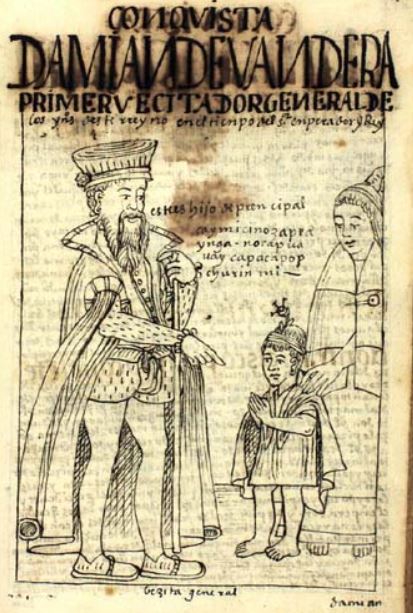 CONQVISTA
DAMIAN DE VANDERA
PRIMER VECITADOR GENERAL DE
los yns deste rreyno en el tienpo del sr enperador y Rey
es tes hijo de prencipal
caymi cinozapra
ynga - no capua
uay capacapop
churin mi
bezita general
damian